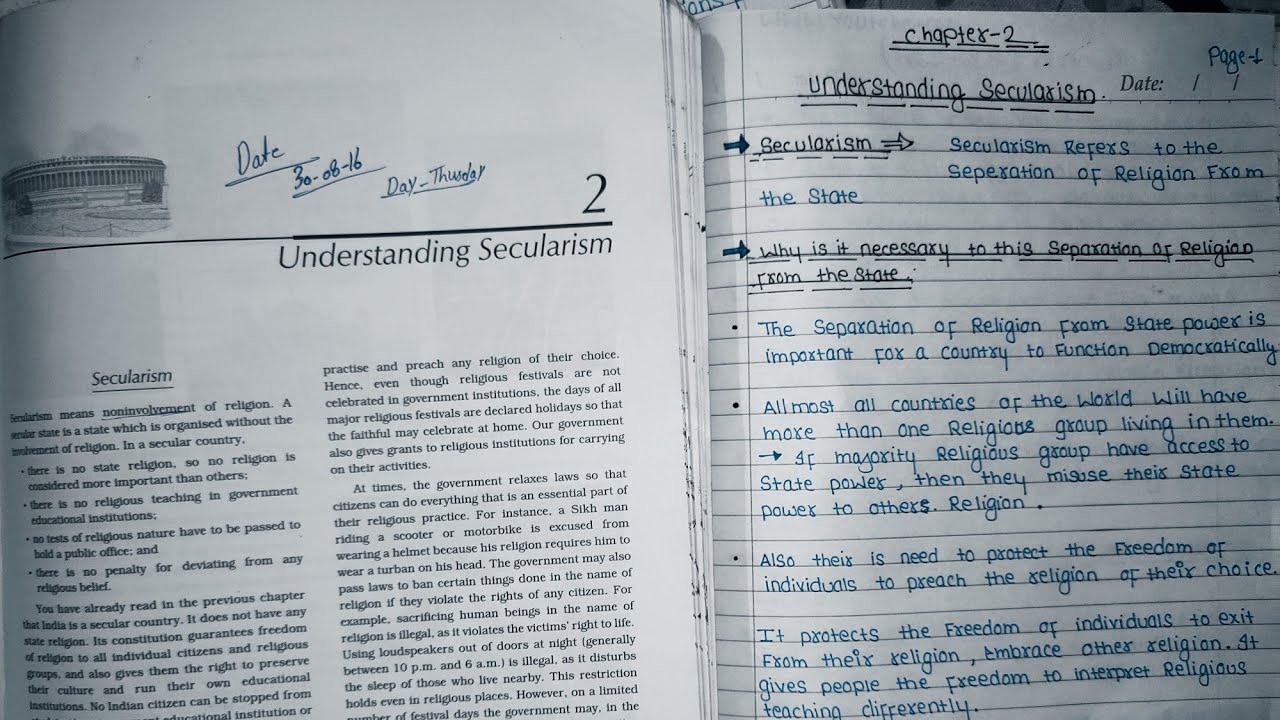 Date
30-08-16
Day-Thusday
2
Understanding Secularism
Secularism
Secularism means noninvolvement of religion. A
secular state is a state which is organised without the
involvement of religion. In a secular country,
• there is no state religion, so no religion is
considered more important than others;
• there is no religious teaching in government
educational institutions;
• no tests of religious nature have to be passed to
hold a public office; and
• there is no penalty for deviating from any
religious belief.
You have already read in the previous chapter
that India is a secular country. It does not have any
state religion. Its constitution guarantees freedom
of religion to all individual citizens and religious
groups, and also gives them the right to preserve
their culture and run their own educational
institutions. No Indian citizen can be stopped from
educational institution or
practise and preach any religion of their choice.
Hence, even though religious festivals are not
celebrated in government institutions, the days of all
major religious festivals are declared holidays so that
the faithful may celebrate at home. Our government
also gives grants to religious institutions for carrying
on their activities.
At times, the government relaxes laws so that
citizens can do everything that is an essential part of
their religious practice. For instance, a Sikh man
riding a scooter or motorbike is excused from
wearing a helmet because his religion requires him to
wear a turban on his head. The government may also
pass laws to ban certain things done in the name of
religion if they violate the rights of any citizen. For
example, sacrificing human beings in the name of
religion is illegal, as it violates the victims' right to life.
Using loudspeakers out of doors at night (generally
between 10 p.m. and 6 a.m.) is illegal, as it disturbs
the sleep of those who live nearby. This restriction
holds even in religious places. However, on a limited
number of festival days the government may, in the
Chapter-2
Page-1
Understanding Secularism. Date: / /
→ Secularism ⇒ Secularism Refers to the
Seperation of Religion From
the State
→ Why is it necessary to this Separation of Religion
From the State.
• The Separation of Religion From State power is
important For a country to Function Democratically
• Allmost all countries of the World Will have
more than one Religious group living in them.
→ If majority Religious group have access to
State power, then they misuse their State
power to others. Religion.
• Also their is need to protect the Freedom of
individuals to preach the religion of their choice.
It protects the Freedom of individuals to exit
From their religion, embrace other religion. It
gives people the Freedom to interpret Religious
teaching differently.